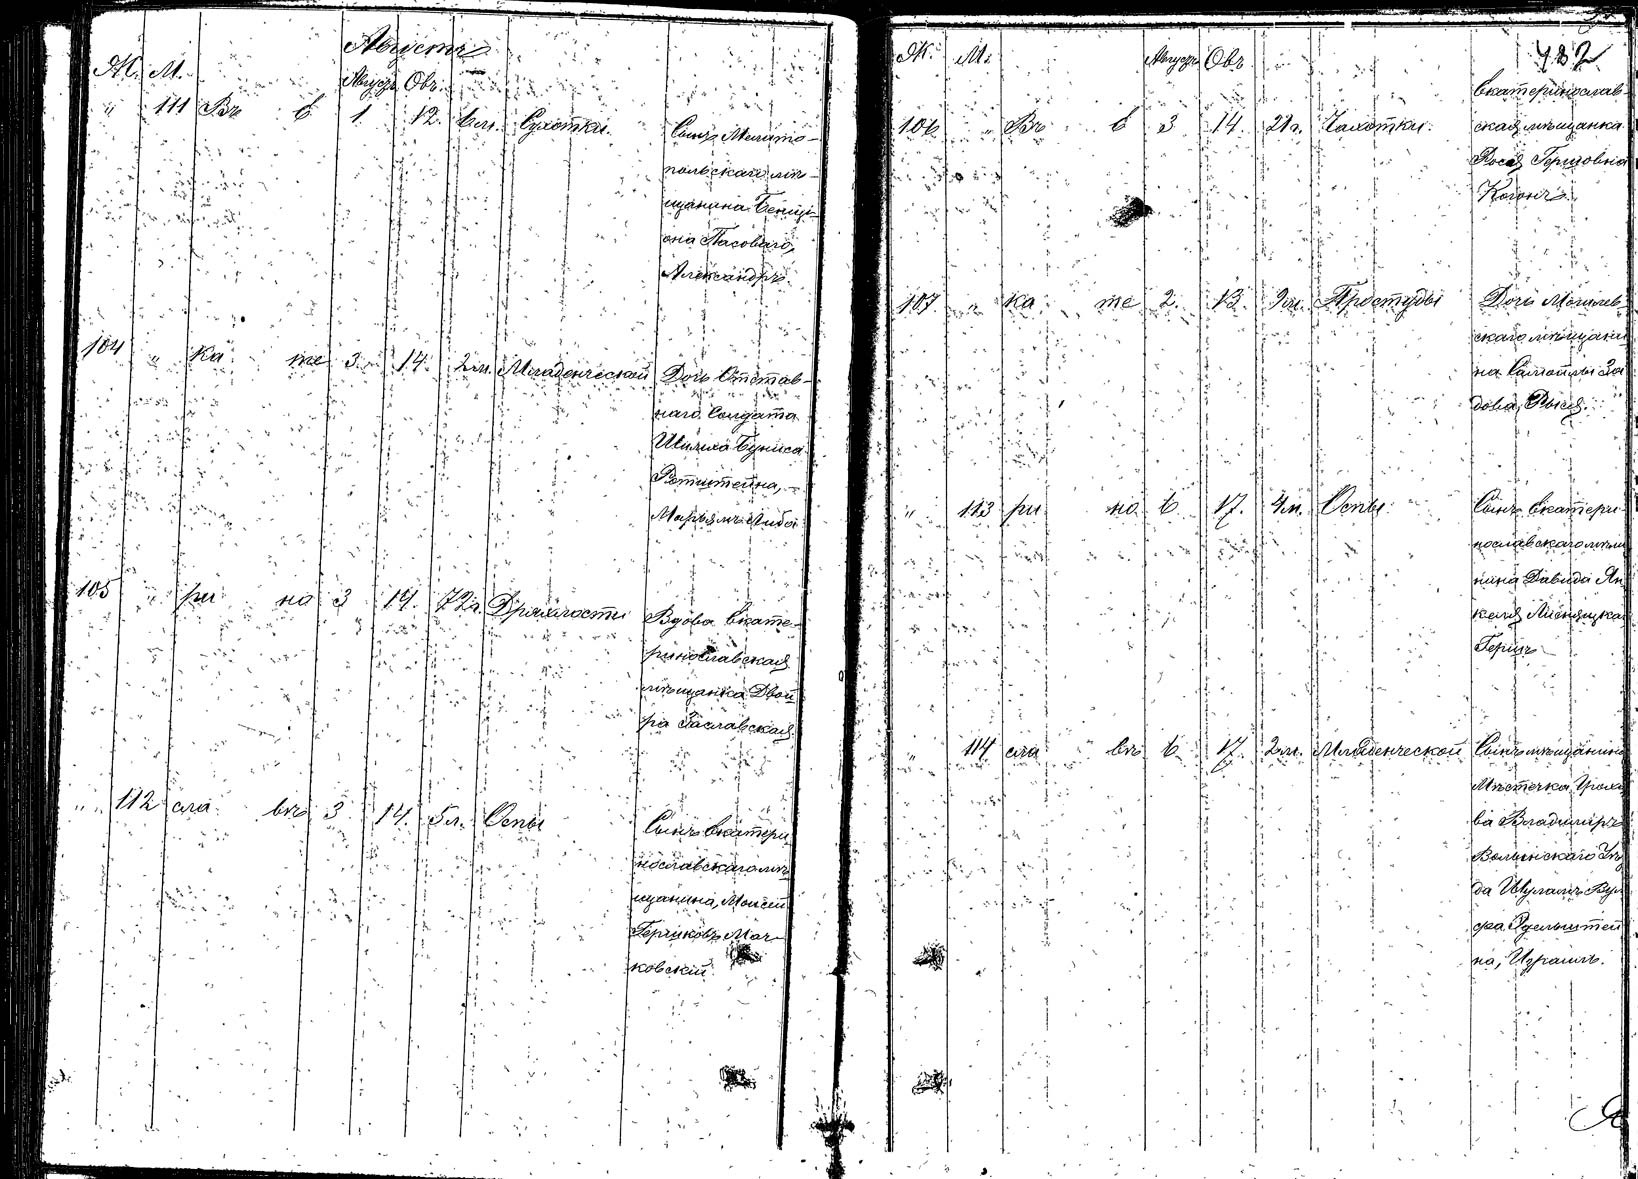 Августъ
Ж. М. Августъ Овъ
" 111 Въ Е 1 12 6 м. Сухотки. Сынъ Мелито-
польскаго мѣ-
щанина Бенці-
она Пасоваго,
Александръ.
104 " ка те 3. 14. 2 м. Младенческой Дочь Отстав-
наго Солдата
Шилиха Буниса
Ротштейна,
Марьямъ Либа
105 " ри но 3 14. 72 г. Дряхлости Вдова Екате-
ринославская
мѣщанка Двой
ра Заславская
" 112 сла въ 3 14. 5 л. Оспы Сынъ Екатери
нославскаго мѣ
щанина, Моисей
Гершковъ Мач-
ковскій.
Ж. М. Августъ Овъ 482
Екатеринослав-
106 " Въ Е 3 14. 21 г. Чахотки. ская мѣщанка
Рося Гершовна
Когонъ
107 " ка те 2. 13. 9 м. Простуды Дочь Могилев
скаго мѣщани
на Самойлы За
дова, Рыся.
" 113 ри но 6 17. 4 м. Оспы. Сынъ Екатери
нославскаго мѣщ
нина Давида Ян
келя Лисницка
Гершъ
" 114 сла въ 6 17. 2 м. Младенческой Сынъ мѣщанина
Мѣстечка
ва Владиміръ
Волынскаго Уѣз
да Шуламъ Вул
фа Эдельштей
на, Израиль.